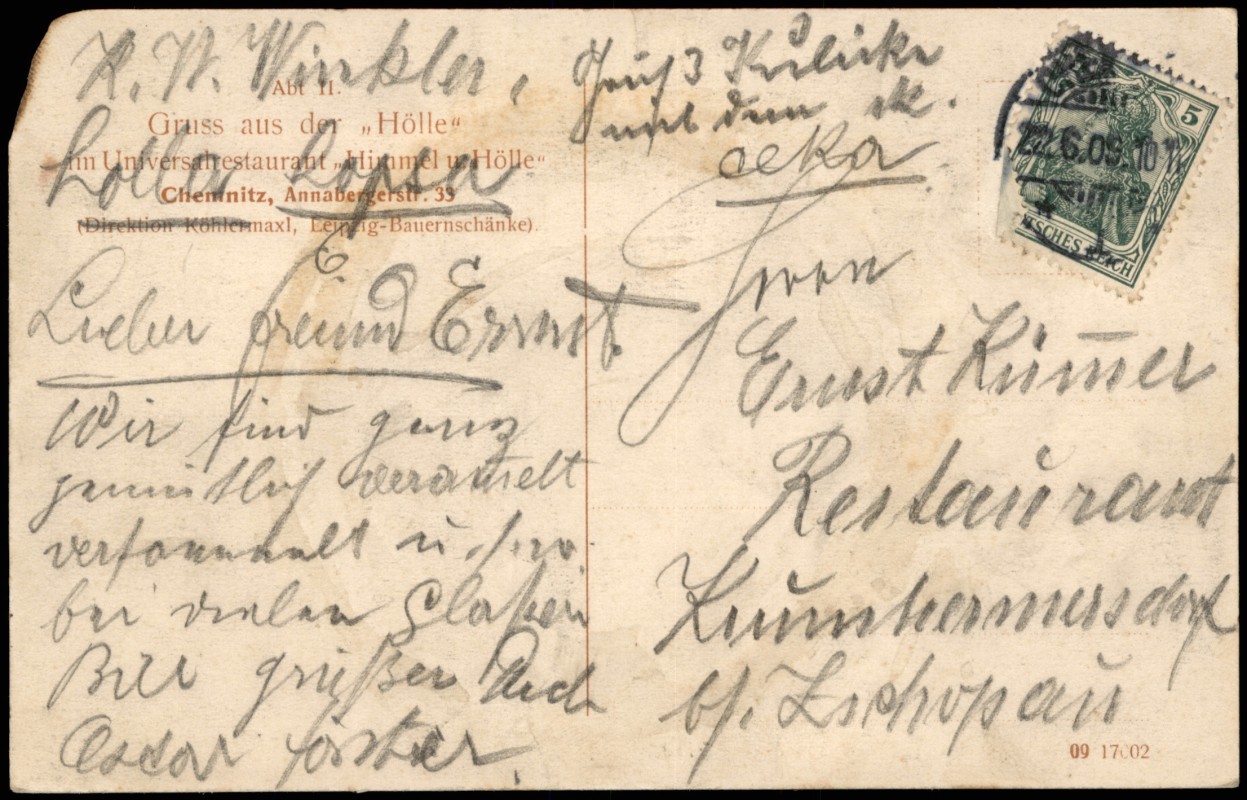 K. W. Winkler,
Abt II.
Gruss aus der „Hölle“
im Universalrestaurant „Himmel u Hölle“
Chemnitz, Annabergerstr. 33
(Direktion Köhlermaxl, Leipzig-Bauernschänke).
Lieber Freund Ernst.
Wir sind ganz
gemütlich
versammelt u.
bei vielen Glasern
Bier grüßen Dich
Oscar Förster.
Gruß
mit dem
Herrn
Ernst Küm̅er
Restaurant
Krumhermersdorf
b/. Zschopau
5
22.6.09. 10
DEUTSCHES REICH
09 17002